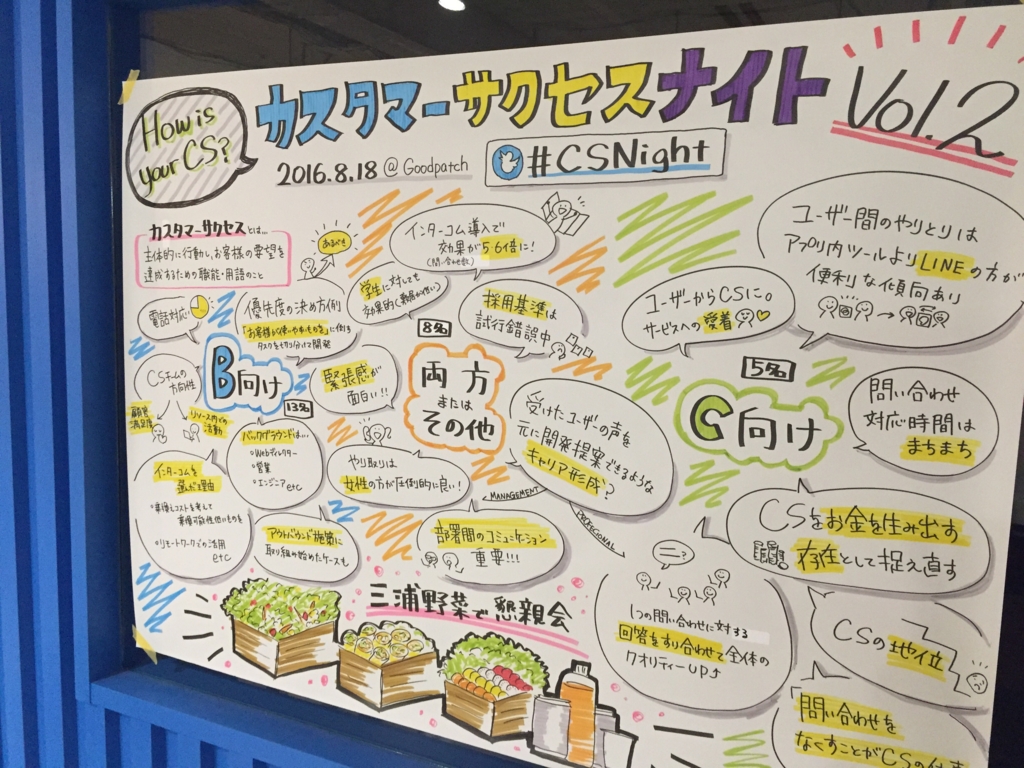 How is
your CS?
カスタマーサクセスナイト Vol.2
2016.8.18 @ Goodpatch
#CSNight
カスタマーサクセスとは…
主体的に行動し、お客様の要望を
達成するための職能・用語のこと
インターコム導入で
効果が5.6倍に!
(問い合わせ数)
学生に対しても
効果的
電話対応
優先度の決め方例
タスクを切り分けて開発
採用基準は
試行錯誤中
ユーザーからCSに。
サービスへの愛着
ユーザー間のやりとりは
アプリ内ツールよりLINEの方が
便利な傾向あり
CSチームの
方向性
顧客
満足度
リソース内での
活動
B向け
13名
緊張感が
面白い!!
8名
両方
または
その他
5名
C向け
問い合わせ
対応時間は
まちまち
バックグラウンドは…
Webディレクター
営業
エンジニア etc
やり取りは
女性の方が圧倒的に良い!
受けたユーザーの声を
元に開発提案できるような
キャリア形成?
MANAGEMENT
インターコムを
選んだ理由
リモートワークでの活用
etc
アウトバウンド施策に
取り組み始めたケースも
部署間のコミュニケーション
重要!!!
CSをお金を生み出す
存在として捉え直す
1つの問い合わせに対する
回答をすり合わせて全体の
クオリティーUP↑
CSの地位
問い合わせを
なくすことがCSの仕事
三浦野菜で懇親会